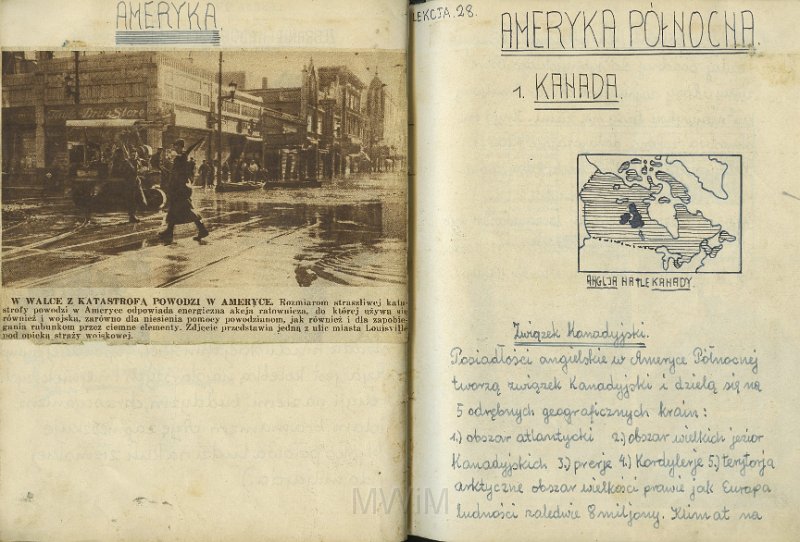 AMERYKA.
Drug Store
W WALCE Z KATASTROFĄ POWODZI W AMERYCE. Rozmiarom straszliwej kata-
strofy powodzi w Ameryce odpowiada energiczna akcja ratownicza, do której używa się
również i wojska, zarówno dla niesienia pomocy powodzianom, jak również i dla zapobie-
gania rabunkom przez ciemne elementy. Zdjęcie przedstawia jedną z ulic miasta Louisville
pod opieką straży wojskowej.
LEKCJA 28.
AMERYKA PÓŁNOCNA.
1. KANADA.
ANGLJA NA TLE KANADY.
Związek Kanadyjski.
Posiadłości angielskie w Ameryce Północnej
tworzą związek Kanadyjski i dzielą się na
5 odrębnych geograficznych krain:
1.) obszar atlantycki 2.) obszar wielkich jezior
Kanadyjskich 3.) prerje 4.) Kordylerje 5.) terytorja
arktyczne obszar wielkości prawie jak Europa
ludności zaledwie 8 miljony. Klimat na
MWiM